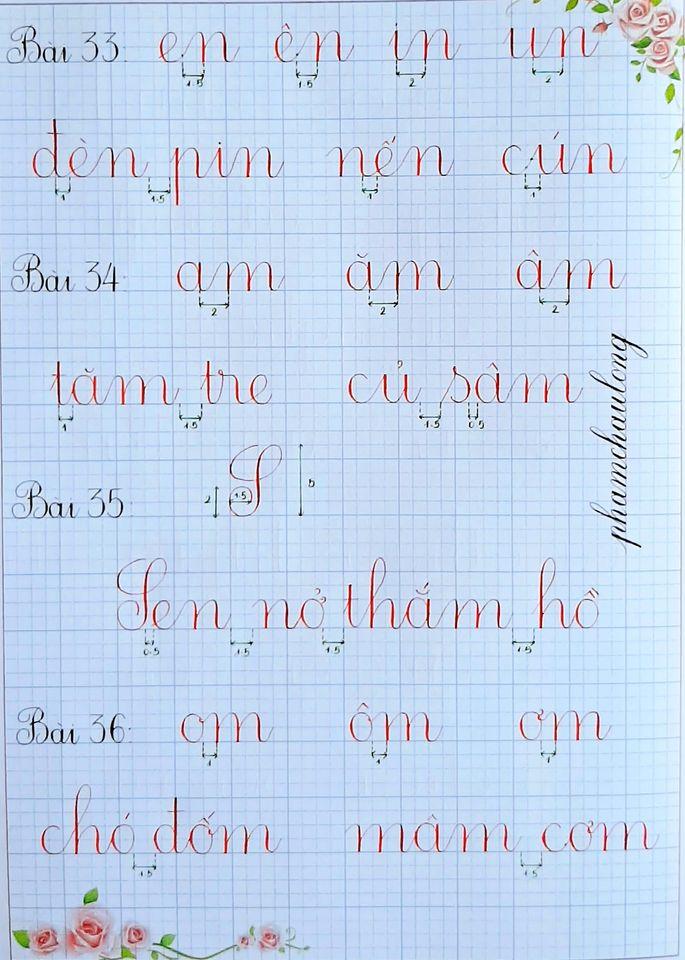 Bài 33: en ên in un
1.5 1.5 2 2
đèn pin nến cún
1 1.5 1 1
Bài 34: am ăm âm
2 2 2
tăm tre củ sâm
1 1.5 1.5 0.5
Bài 35: S
2 1.5 5
Sen nở thắm hồ
0.5 1.5 1.5 1.5
Bài 36: om ôm ơm
1 1 1
chó đốm mâm cơm
1.5 1.5
phamchaulong